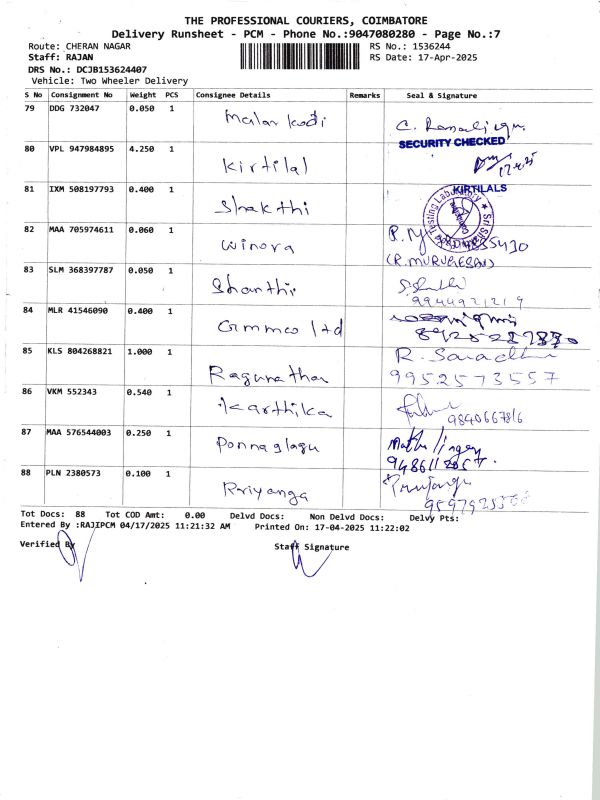 THE PROFESSIONAL COURIERS, COIMBATORE
Delivery Runsheet - PCM - Phone No.:9047080280 - Page No.:7
Route: CHERAN NAGAR RS No.: 1536244
Staff: RAJAN RS Date: 17-Apr-2025
DRS No.: DCJB153624407
Vehicle: Two Wheeler Delivery
S No Consignment No Weight PCS Consignee Details Remarks Seal & Signature
79 DDG 732047 0.050 1 Malar kodi
SECURITY CHECKED
80 VPL 947984895 4.250 1 Kirtilal
KIRTILALS
81 IXM 508197793 0.400 1 Shakthi
Testing Laboratory
82 MAA 705974611 0.060 1 Winora
(R.MURUGESAN)
83 SLM 368397787 0.050 1 Shanthi
9944921219
84 MLR 41546090 0.400 1 Gmmco ltd
85 KLS 804268821 1.000 1 Ragunathan R. Saradha
9952573557
86 VKM 552343 0.540 1 Karthika
9840667816
87 MAA 576544003 0.250 1 Ponnaglagu
88 PLN 2380573 0.100 1 Priyanga
Tot Docs: 88 Tot COD Amt: 0.00 Delvd Docs: Non Delvd Docs: Delvy Pts:
Entered By :RAJIPCM 04/17/2025 11:21:32 AM Printed On: 17-04-2025 11:22:02
Verified By Staff Signature